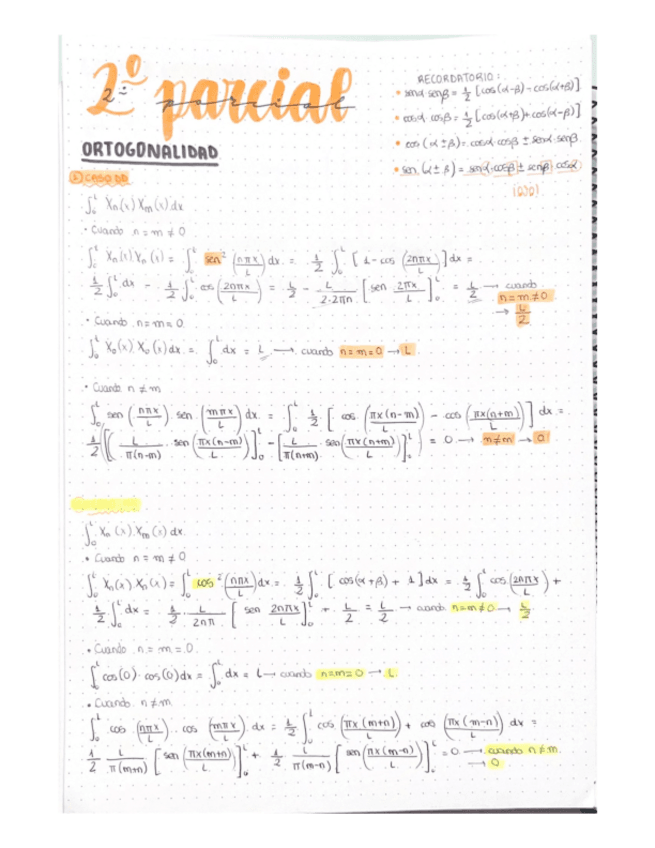 2º parcial
parcial
RECORDATORIO:
• senα senβ = 1/2 [cos(α-β) - cos(α+β)]
• cosα cosβ = 1/2 [cos(α+β) + cos(α-β)]
• cos(α±β) = cosα·cosβ ± senα·senβ
• sen(α±β) = senα·cosβ ± senβ·cosα
ORTOGONALIDAD
1) CASO DD
∫₀ᴸ Xn(x) Xm(x) dx
• Cuando n = m ≠ 0
∫₀ᴸ Xn(x) Xn(x) = ∫₀ᴸ sen² (nπx/L) dx = 1/2 ∫₀ᴸ [1 - cos (2nπx/L)] dx =
1/2 ∫₀ᴸ dx - 1/2 ∫₀ᴸ cos (2nπx/L) = L/2 - L/2·2πn [sen 2πx/L]₀ᴸ = L/2 → cuando
n=m≠0
→ L/2
• Cuando n=m=0
∫₀ᴸ X₀(x) X₀(x) dx = ∫₀ᴸ dx = L → cuando n=m=0 → L
• Cuando n ≠ m
∫₀ᴸ sen (nπx/L) · sen (mπx/L) dx = ∫₀ᴸ 1/2 [cos (πx(n-m)/L) - cos (πx(n+m)/L)] dx =
1/2 [(L/π(n-m) sen (πx(n-m)/L)]₀ᴸ - [L/π(n+m) · sen (πx(n+m)/L)]₀ᴸ) = 0 → n≠m → 0
∫₀ᴸ Xn(x) Xm(x) dx
• Cuando n = m ≠ 0
∫₀ᴸ Xn(x) Xn(x) = ∫₀ᴸ cos² (nπx/L) dx = 1/2 ∫₀ᴸ [cos(α+β) + 1] dx = 1/2 ∫₀ᴸ cos (2nπx/L) +
1/2 ∫₀ᴸ dx = 1/2 · L/2nπ [sen 2nπx/L]₀ᴸ + L/2 = L/2 → cuando n=m≠0 → L/2
• Cuando n = m = 0
∫₀ᴸ cos(0) · cos(0) dx = ∫₀ᴸ dx = L → cuando n=m=0 → L
• Cuando n≠m
∫₀ᴸ cos (nπx/L) · cos (mπx/L) dx = 1/2 ∫₀ᴸ cos (πx(m+n)/L) + cos (πx(m-n)/L) dx =
1/2 L/π(m+n) [sen (πx(m+n)/L)]₀ᴸ + 1/2 L/π(m-n) [sen (πx(m-n)/L)]₀ᴸ = 0 → cuando n≠m
→ 0